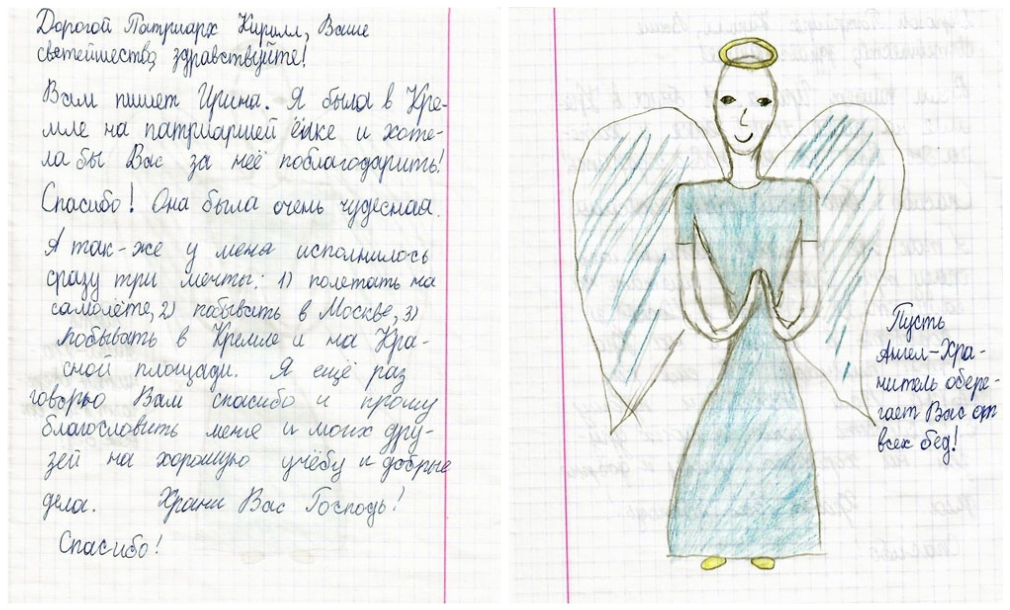 Дорогой Патриарх Кирилл, Ваше
светейшество, здравствуйте!
Вам пишет Ирина. Я была в Кре-
мле на патриаршей ёлке и хоте-
ла бы Вас за неё поблагодарить!
Спасибо! Она была очень чудесная.
А так-же у меня исполнилось
сразу три мечты: 1) полетать на
самолёте, 2) побывать в Москве, 3)
побывать в Кремле и на Кра-
сной площади. Я ещё раз
говорю Вам спасибо и прошу
благословить меня и моих дру-
зей на хорошую учёбу и добрые
дела. Храни Вас Господь!
Спасибо!
Пусть
Ангел-Хра-
нитель обере-
гает Вас от
всех бед!